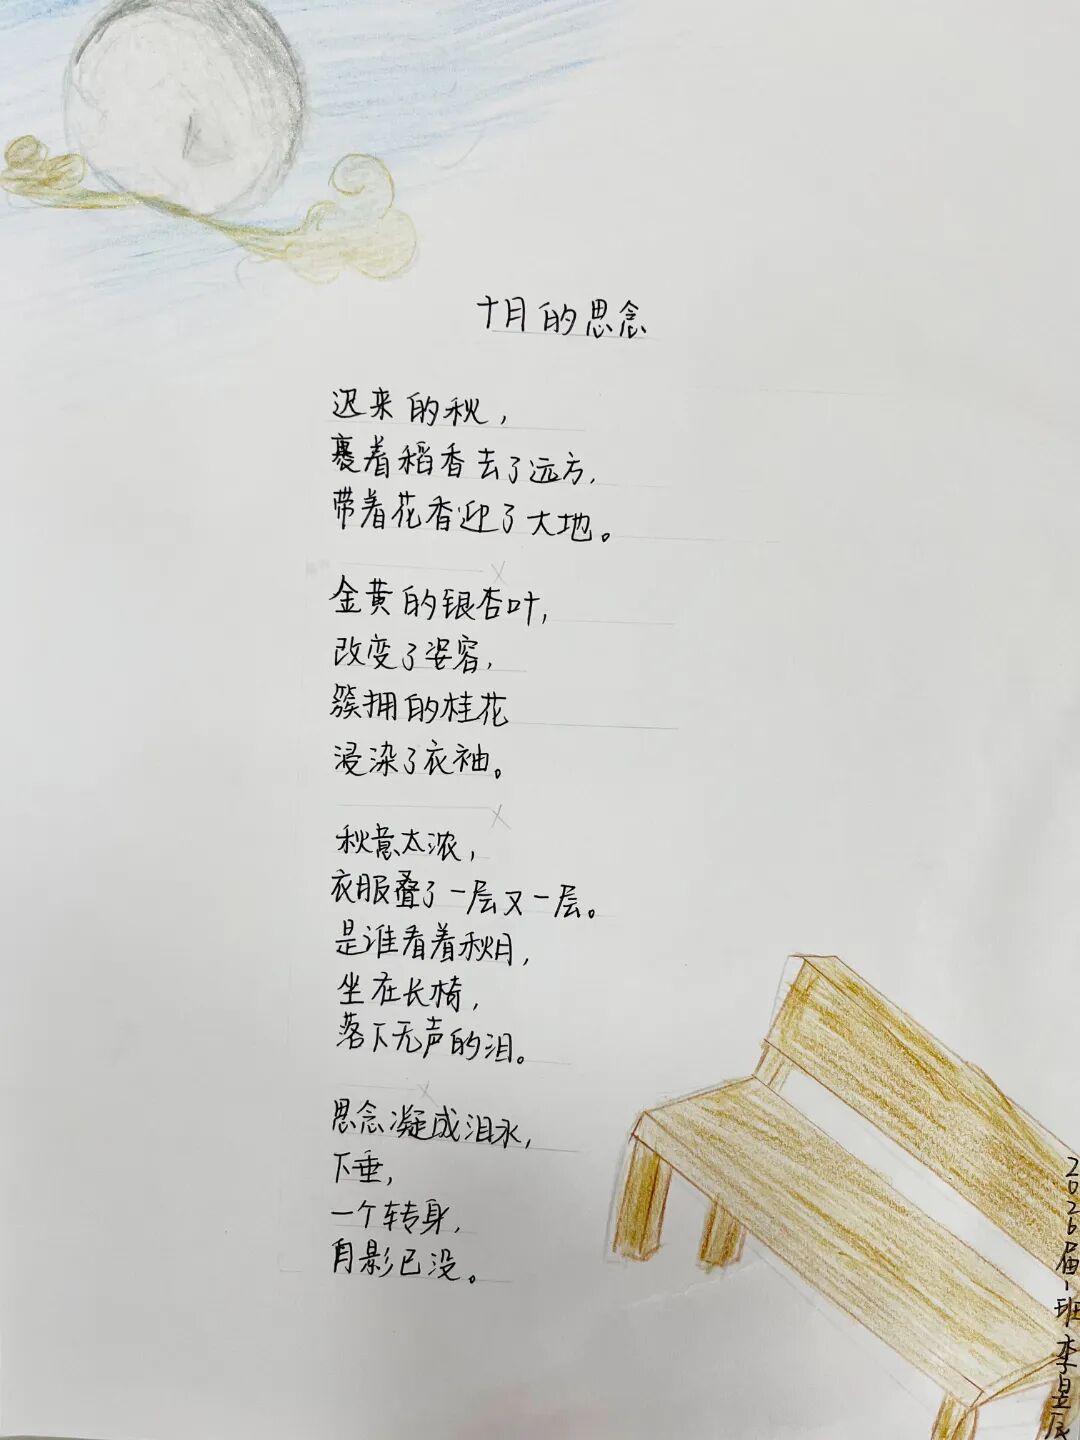 十月的思念
迟来的秋，
裹着稻香去了远方，
带着花香迎了大地。
金黄的银杏叶，
改变了姿容，
簇拥的桂花
浸染了衣袖。
秋意太浓，
衣服叠了一层又一层。
是谁看着秋月，
坐在长椅，
落下无声的泪。
思念凝成泪水，
下垂，
一个转身，
月影已没。
2026届1班 李昱辰